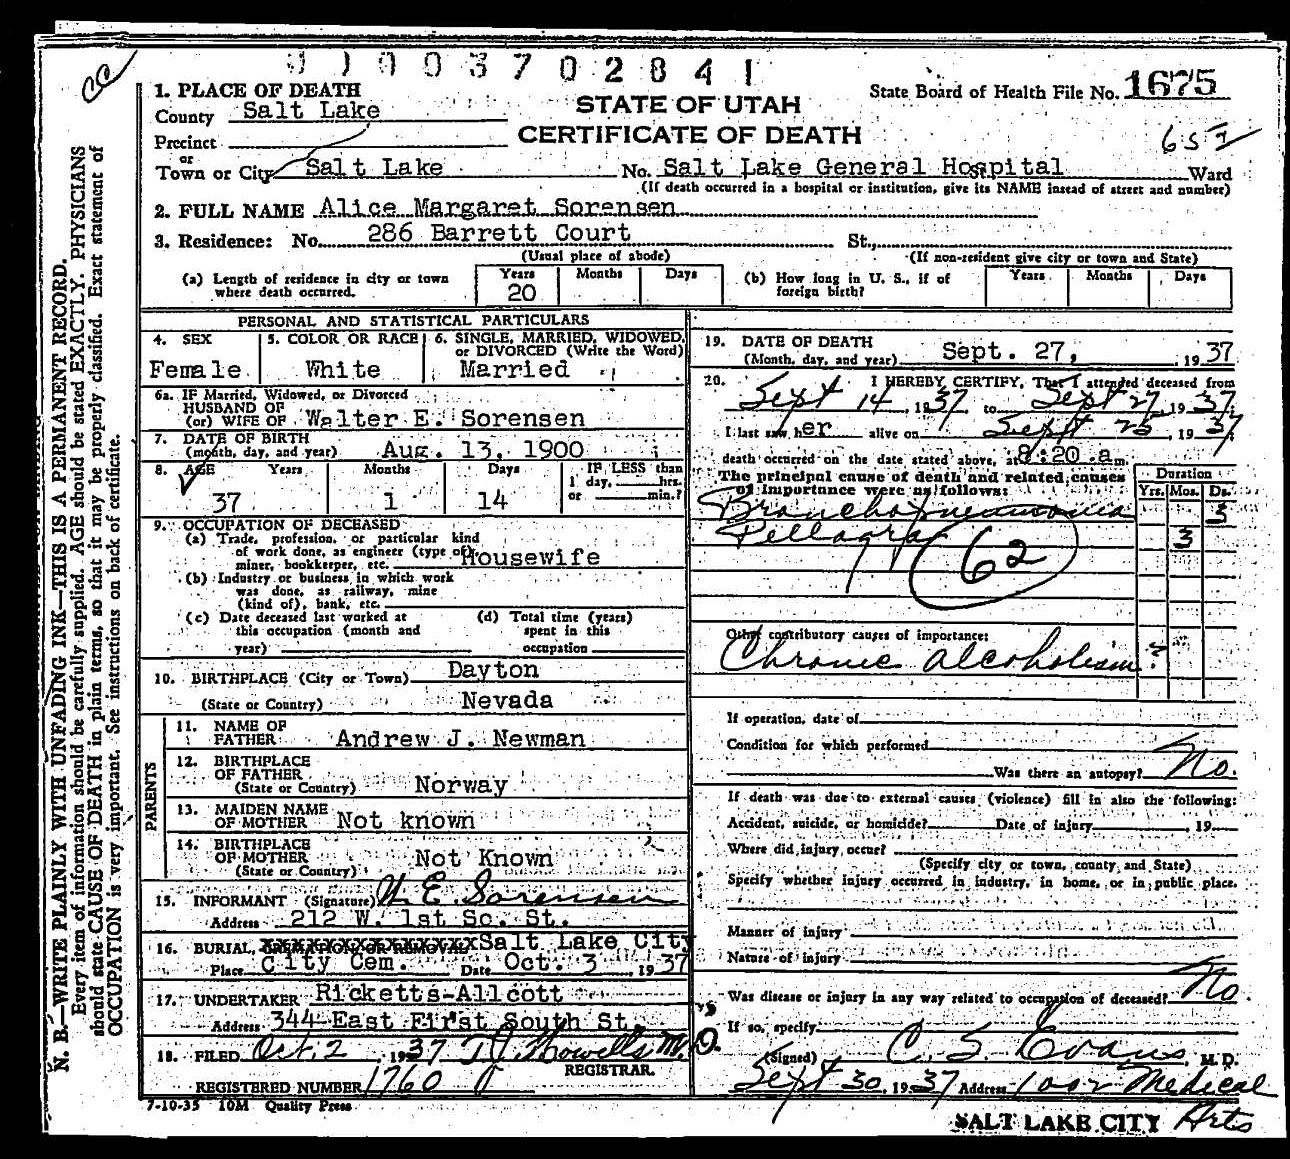 0100370 2841
cc
1. PLACE OF DEATH
County Salt Lake
Precinct
or
Town or City Salt Lake
STATE OF UTAH
CERTIFICATE OF DEATH
State Board of Health File No. 1675
No. Salt Lake General Hospital Ward
(If death occurred in a hospital or institution, give its NAME instead of street and number)
2. FULL NAME Alice Margaret Sorensen
3. Residence: No. 286 Barrett Court St.,
(Usual place of abode) (If non-resident give city or town and State)
(a) Length of residence in city or town where death occurred. Years 20 Months Days
(b) How long in U. S., if of foreign birth? Years Months Days
PERSONAL AND STATISTICAL PARTICULARS
4. SEX Female
5. COLOR OR RACE White
6. SINGLE, MARRIED, WIDOWED, or DIVORCED (Write the Word) Married
6a. IF Married, Widowed, or Divorced
HUSBAND OF
(or) WIFE OF Walter E. Sorensen
7. DATE OF BIRTH
(month, day, and year) Aug. 13, 1900
8. AGE Years 37 Months 1 Days 14 IF LESS than 1 day, hrs. or min.?
9. OCCUPATION OF DECEASED
(a) Trade, profession, or particular kind
of work done, as engineer (type of),
miner, bookkeeper, etc. Housewife
(b) Industry or business in which work
was done, as railway, mine
(kind of), bank, etc.
(c) Date deceased last worked at
this occupation (month and
year)
(d) Total time (years)
spent in this
occupation
10. BIRTHPLACE (City or Town) Dayton
(State or Country) Nevada
PARENTS
11. NAME OF
FATHER Andrew J. Newman
12. BIRTHPLACE
OF FATHER
(State or Country) Norway
13. MAIDEN NAME
OF MOTHER Not known
14. BIRTHPLACE
OF MOTHER Not Known
(State or Country)
15. INFORMANT (Signature) W. E. Sorensen
Address 212 W. 1st So. St.
16. BURIAL, Salt Lake City
Place City Cem. Date Oct. 3, 1937
17. UNDERTAKER Ricketts-Allcott
Address 344 East First South St.
18. FILED Oct. 2, 1937 T. J. Howells M. D.
REGISTRAR.
REGISTERED NUMBER 1760
7-10-35 10M Quality Press
19. DATE OF DEATH
(Month, day, and year) Sept. 27, 1937
20. I HEREBY CERTIFY, That I attended deceased from
Sept 14, 1937, to Sept 27, 1937.
I last saw her alive on Sept 25, 1937,
death occurred on the date stated above, at 8:20 a m.
The principal cause of death and related causes
of importance were as follows:
Duration
Yrs. Mos. Ds.
Bronchopneumonia 3
Pellagra 3
62
Other contributory causes of importance:
Chronic alcoholism ?
If operation, date of
Condition for which performed
Was there an autopsy? No.
If death was due to external causes (violence) fill in also the following:
Accident, suicide, or homicide? Date of injury , 19
Where did injury occur?
(Specify city or town, county and State)
Specify whether injury occurred in industry, in home, or in public place.
Manner of injury
Nature of injury
Was disease or injury in any way related to occupation of deceased? No.
If so, specify
(Signed) C. S. Evans, M. D.
Sept 30, 1937 Address 1002 Medical
SALT LAKE CITY Arts
N. B.—WRITE PLAINLY WITH UNFADING INK—THIS IS A PERMANENT RECORD.
Every item of information should be carefully supplied. AGE should be stated EXACTLY. PHYSICIANS
should state CAUSE OF DEATH in plain terms, so that it may be properly classified. Exact statement of
OCCUPATION is very important. See instructions on back of certificate.